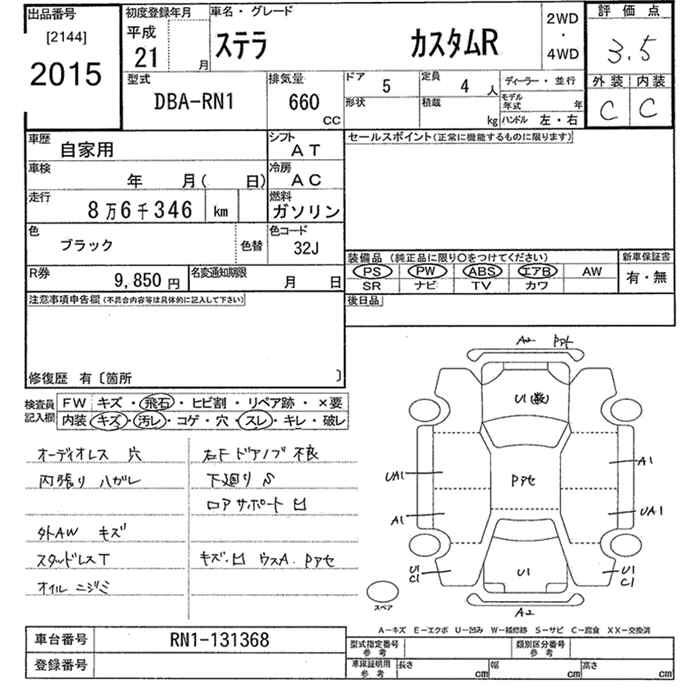 出品番号
[2144]
2015
初度登録年月
平成
21 月
車名・グレード
ステラ カスタムR
2WD
・
4WD
評価点
3.5
型式
DBA-RN1
排気量
660
CC
ドア 5
定員 4 人
形状
積載 kg
ディーラー・並行
モデル年式 年
ハンドル 左・右
外装 内装
C C
車歴
自家用
シフト
AT
車検
年 月( 日)
冷房
AC
走行
8万6千346 km
燃料
ガソリン
色
ブラック
色替
色コード
32J
R券
9,850円
名変通知期限
月 日
セールスポイント(正常に機能するものに限ります)
装備品(純正品に限り○をつけてください)
新車保証書
PS PW ABS エアB AW
SR ナビ TV カワ
有・無
後日品
注意事項申告欄(不具合内容等は具体的に記入して下さい)
修復歴 有〔箇所 〕
検査員記入欄
FW キズ・飛石・ヒビ割・リペア跡・×要
内装 キズ・汚レ・コゲ・穴・スレ・キレ・破レ
オーディオレス 穴
内張り ハガレ
外AW キズ
スタッドレスT
オイル ニジミ
右F ドアノブ 不良
下廻り S
ロアサポート 凹
キズ・凹 ウスA. Pアセ
A2 Pアセ
U1(数)
UA1
A1
Pアセ
A1
UA1
U1
C1
U1
U1
C1
A2
スペア
A-キズ E-エクボ U-凹み W-補修跡 S-サビ C-腐食 XX-交換済
車台番号 RN1-131368
登録番号
型式指定番号
参考
類別区分番号
参考
車庫証明用
参考
長さ cm
幅 cm
高さ cm